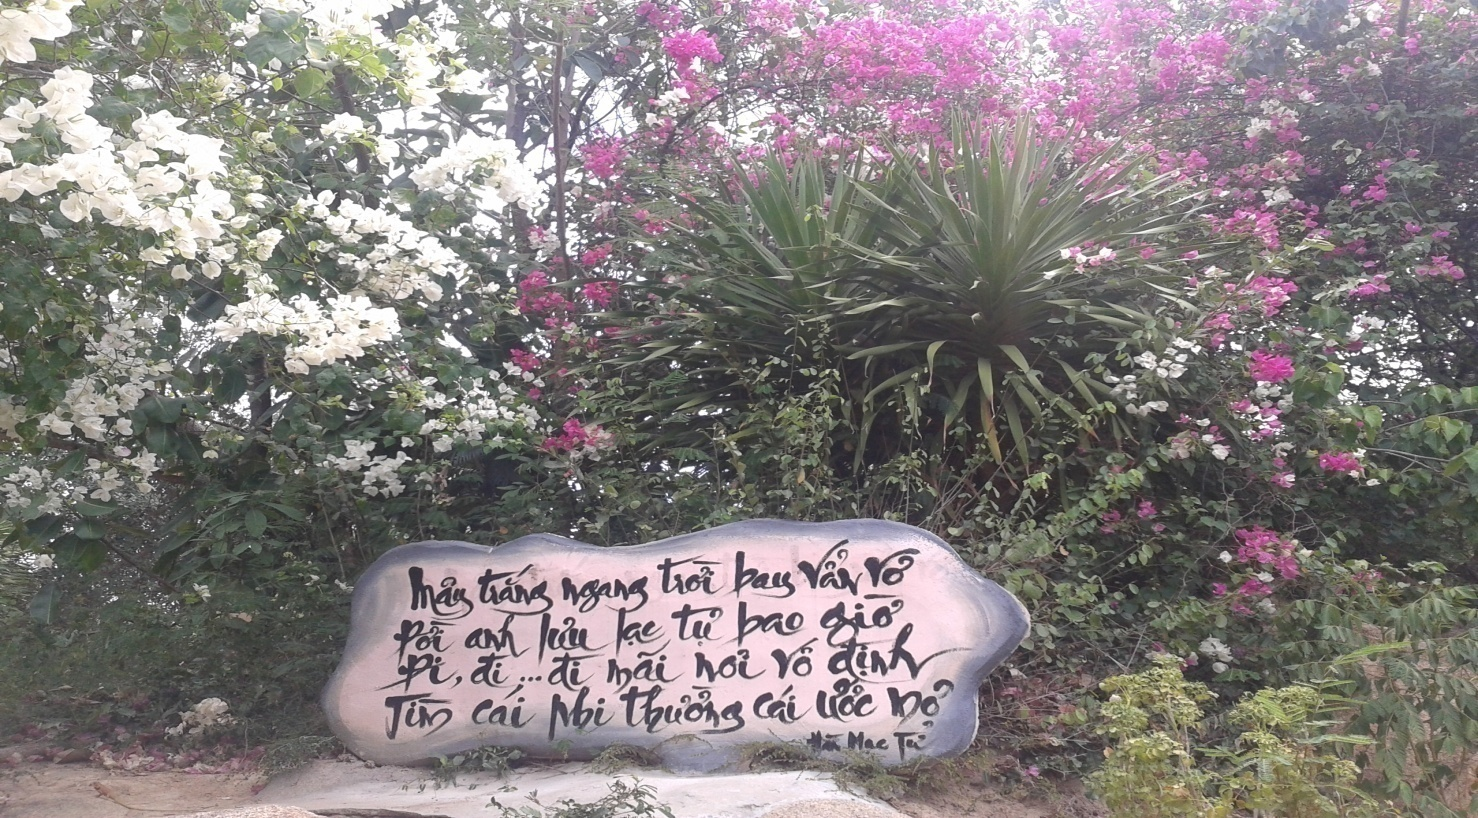 Mây trắng ngang trời bay vẩn vơ
Đời anh lưu lạc tự bao giờ
Đi, đi ... đi mãi nơi vô định
Tìm cái phi thường cái ước mơ
Hàn Mạc Tử